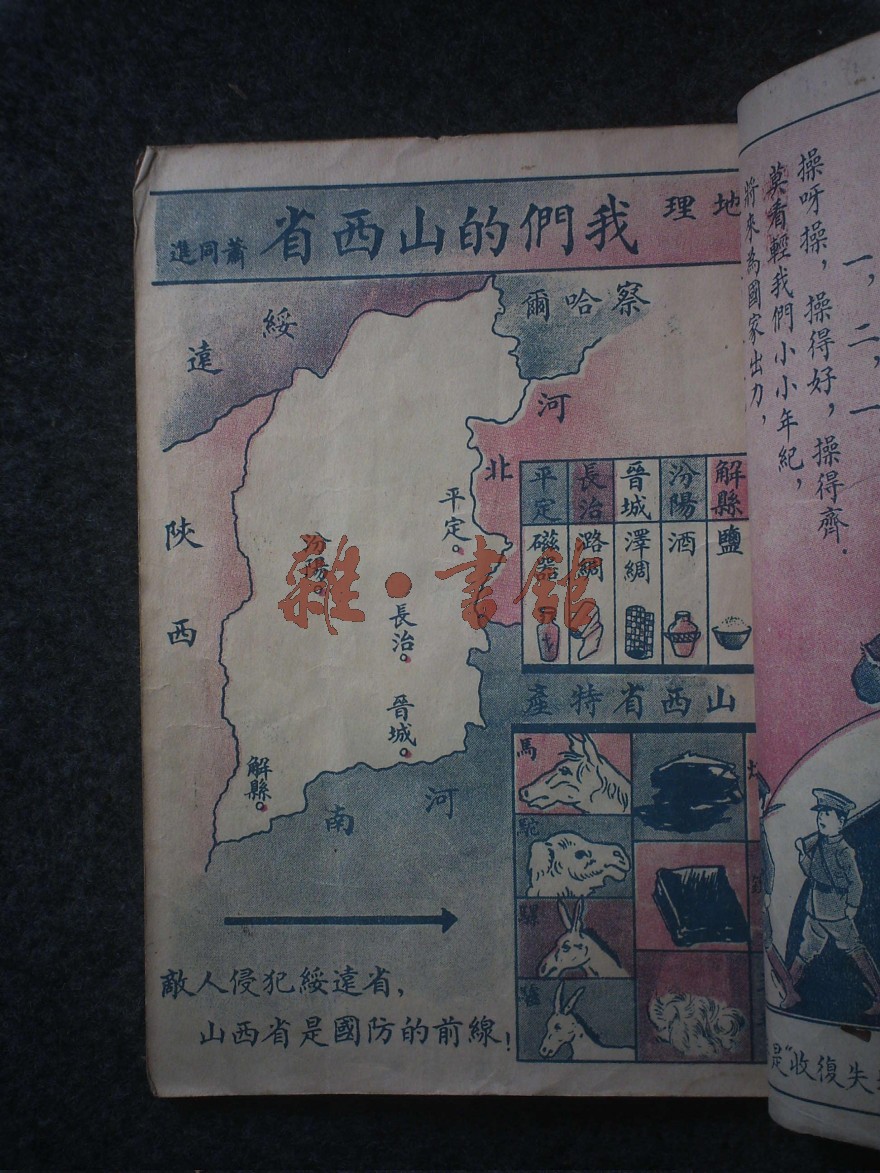 操呀操，操得好，操得齊．
莫看輕我們小小年紀，
將來為國家出力，
一，二，一，
是“收復失
地理
我們的山西省
蕭同進
察哈爾
綏遠
河北
陝西
河南
平定
汾陽
長治
晉城
解縣
解縣 鹽
汾陽 酒
晉城 澤綢
長治 潞綢
平定 磁器
山西省特產
馬
駝
騾
驢
敵人侵犯綏遠省，
山西省是國防的前線！
雜·書館